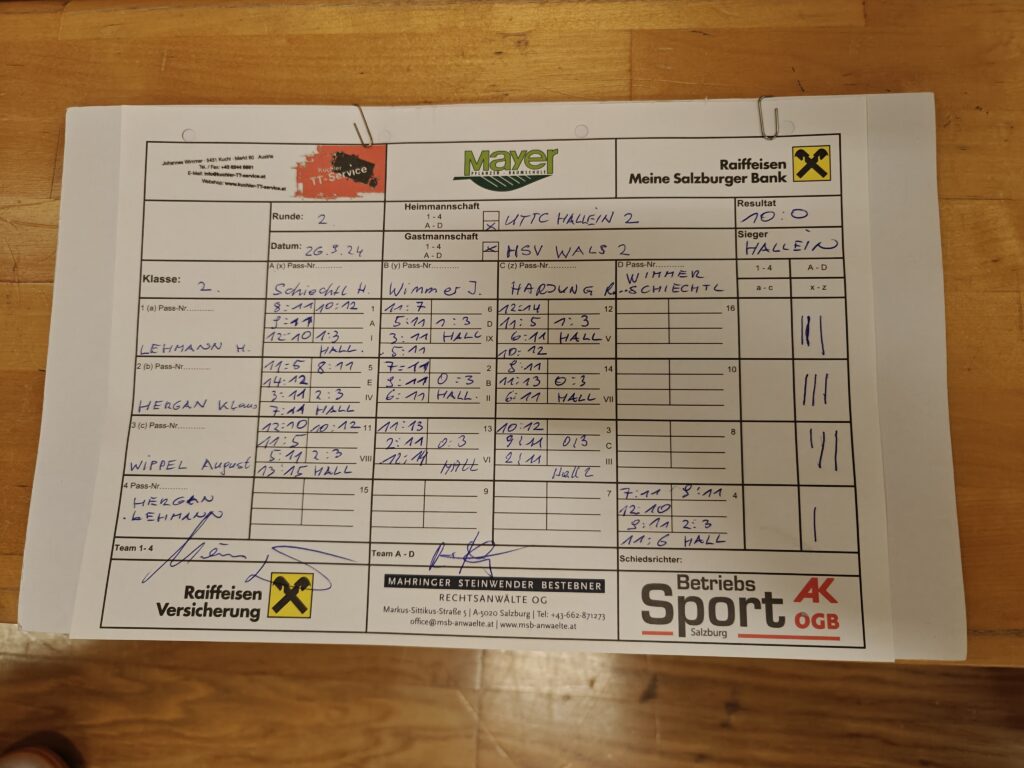 Johannes Wimmer · 5431 Kuchl · Markt 60 Austria
Tel. / Fax: +43 6244 6691
E-Mail: info@kuchler-TT-service.at
Webshop: www.kuchler-TT-service.at
Kuchler
TT-Service
Mayer
PFLANZEN · BAUMSCHULE
Raiffeisen
Meine Salzburger Bank
Runde: 2.
Heimmannschaft
1 - 4
A - D X UTTC HALLEIN 2
Resultat
10:0
Datum: 26.3.24
Gastmannschaft
1 - 4 X HSV WALS 2
A - D
Sieger
HALLEIN
Klasse: 2.
A (x) Pass-Nr............
Schiechtl H.
B (y) Pass-Nr............
Wimmer J.
C (z) Pass-Nr............
HARJUNG R.
D Pass-Nr............
WIMMER
SCHIECHTL
1 - 4 A - D
a - c x - z
1 (a) Pass-Nr............
LEHMANN H.
8:11 10:12 1
9:11 A
12:10 1:3 I
HALL.
11:7 6
5:11 1:3 D
3:11 HALL IX
5:11
12:14 12
11:5 1:3
6:11 HALL V
10:12
16
2 (b) Pass-Nr............
HERGAN Klaus
11:5 8:11 5
14:12 E
3:11 2:3 IV
7:11 HALL
7:11 2
9:11 0:3 B
6:11 HALL. II
8:11 14
11:13 0:3
6:11 HALL VII
10
3 (c) Pass-Nr............
WIPPEL August
12:10 10:12 11
11:5
5:11 2:3 VIII
13:15 HALL
11:13 13
2:11 0:3
12:14 HALL VI
10:12 3
9:11 0:3 C
2:11 III
Hall 2
8
4 Pass-Nr............
HERGAN
LEHMANN
15
9
7
7:11 9:11 4
12:10
9:11 2:3
11:6 HALL
Team 1- 4
Team A - D
Schiedsrichter:
Raiffeisen
Versicherung
MAHRINGER STEINWENDER BESTEBNER
RECHTSANWÄLTE OG
Markus-Sittikus-Straße 5 | A-5020 Salzburg | Tel: +43-662-871273
office@msb-anwaelte.at | www.msb-anwaelte.at
Betriebs
Sport
Salzburg
AK
ÖGB